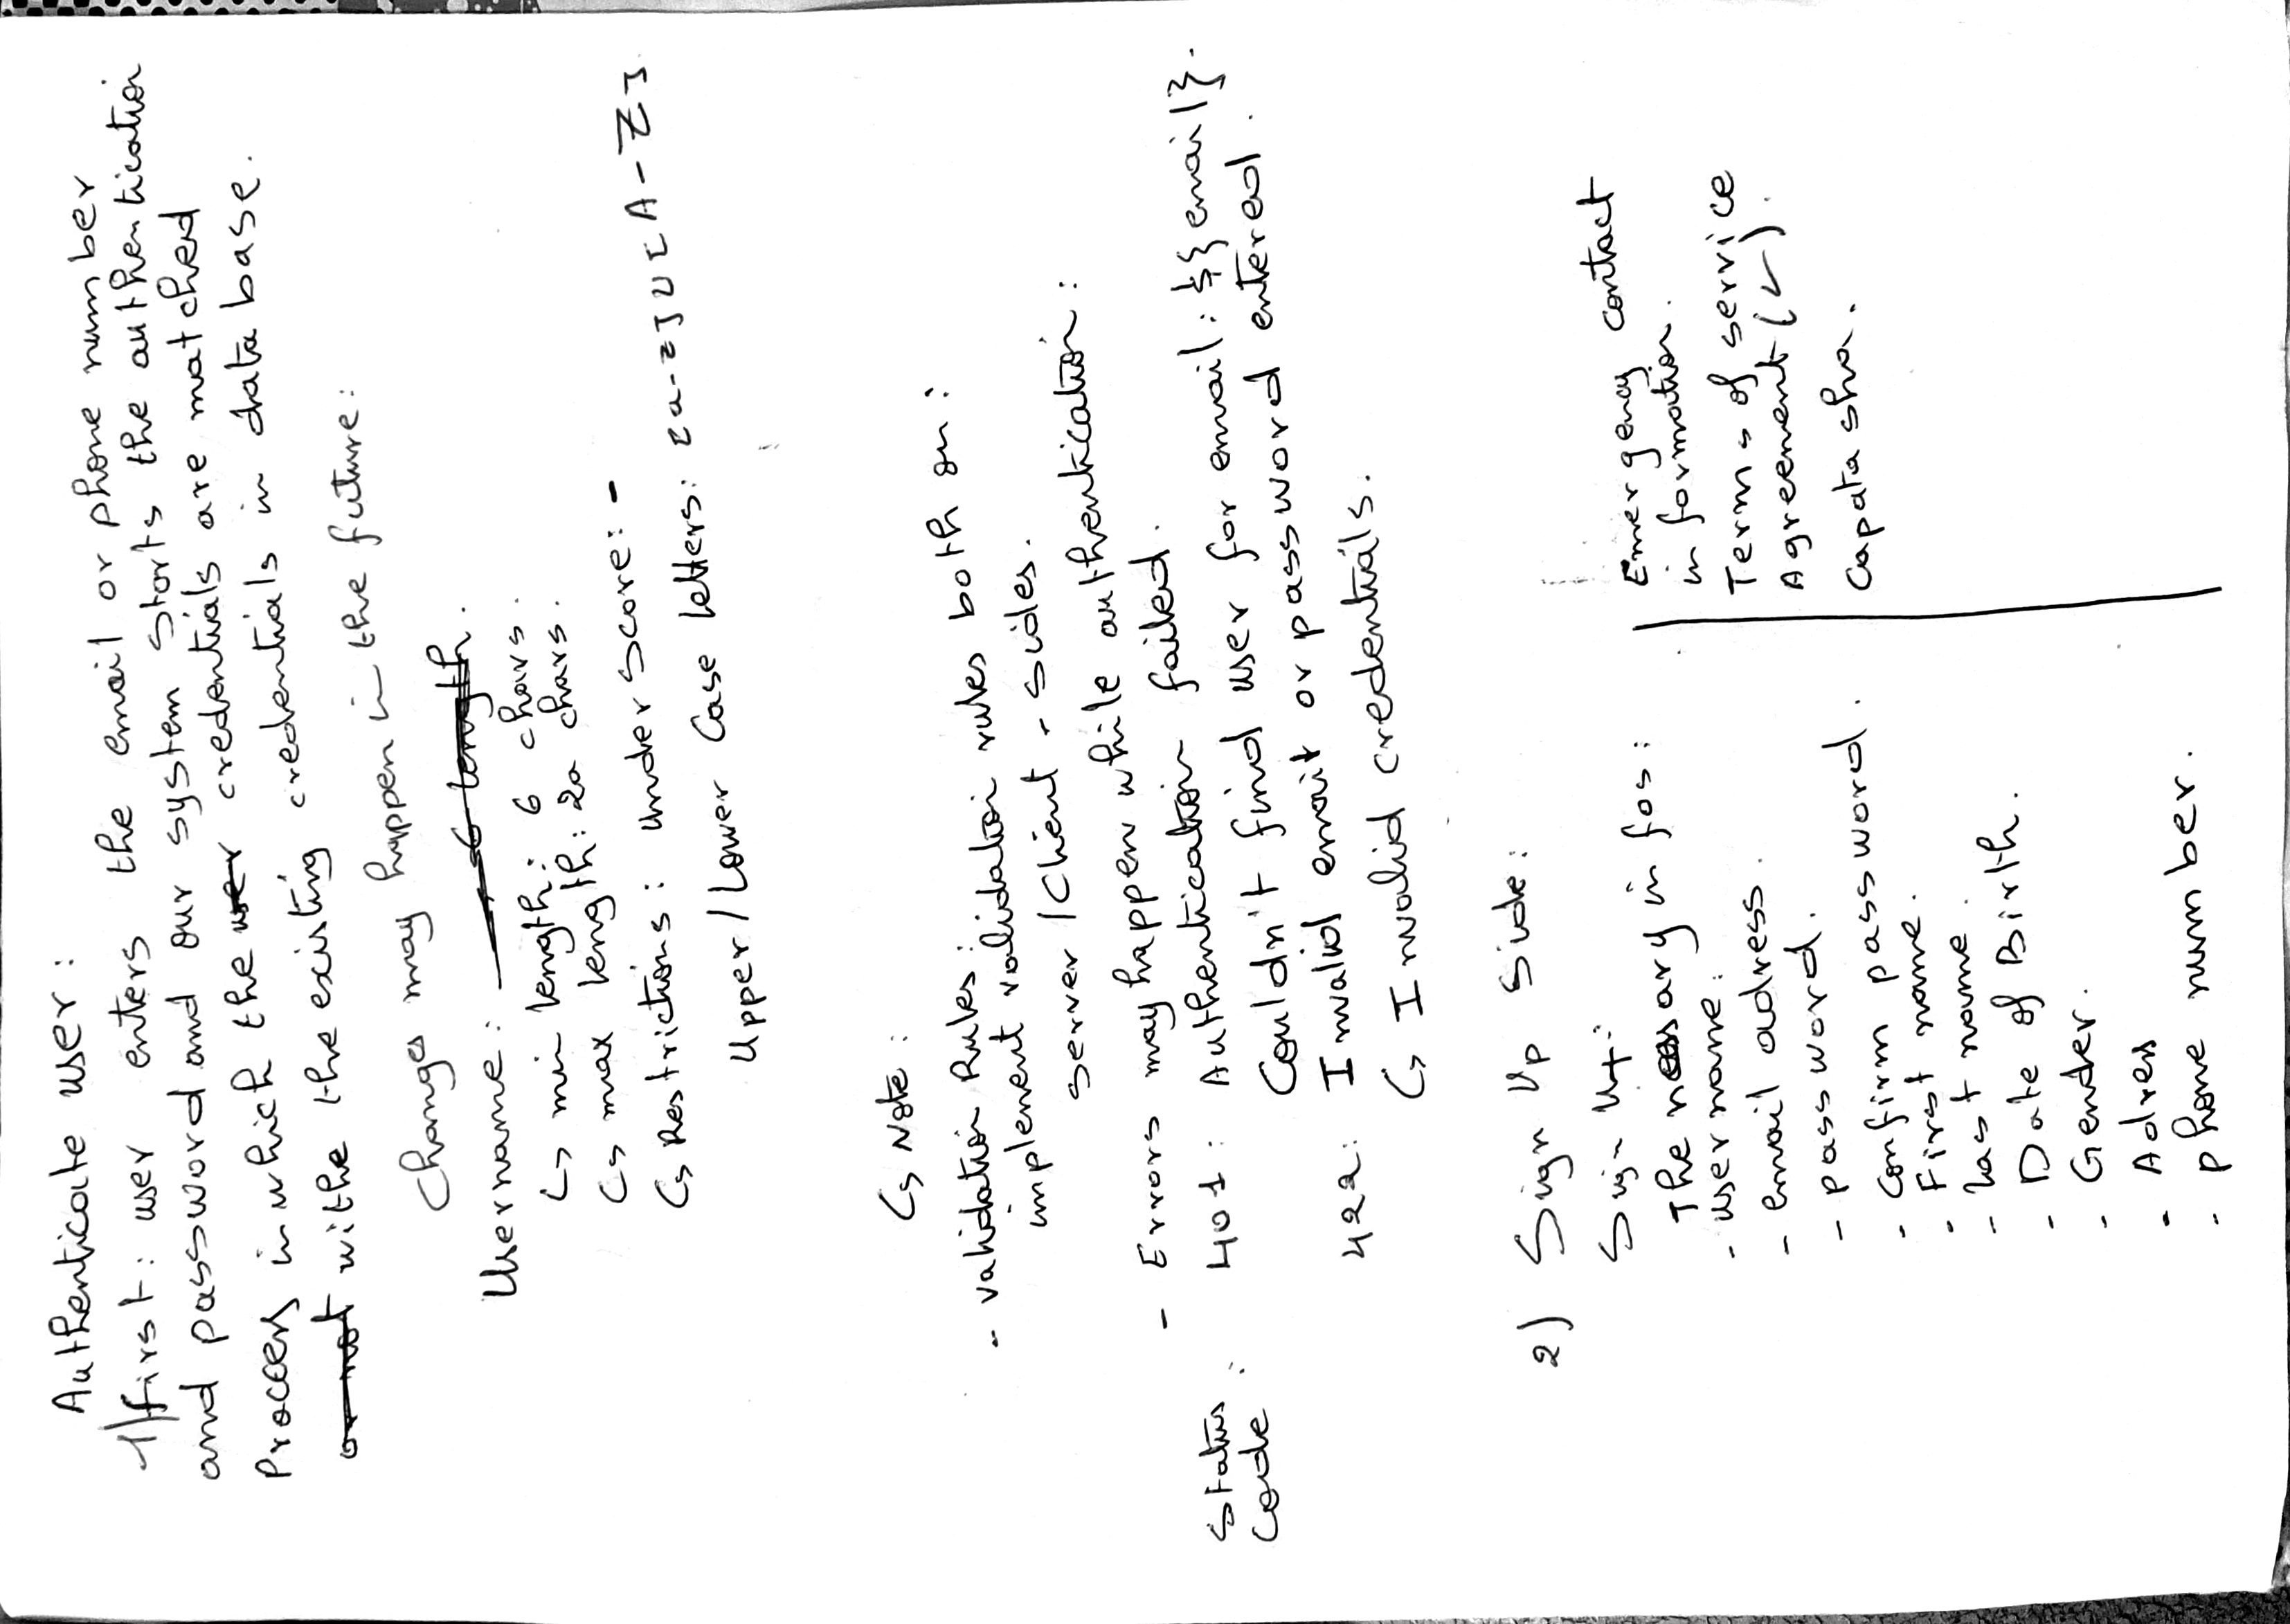 Authenticate user :
1) first : user enters the email or phone number
and password and our system starts the authentication
Proccess in which the user credentials are matched
or not withe the existing credentials in data base.
Changes may happen in the future :
Username : 6 length.
↳ min length : 6 chars.
↳ max length : 20 chars.
↳ Restrictions : Under Score : -
Upper / Lower Case letters : [a-z] U [A-Z]
↳ Note :
- validation Rules :
implement validation rules both on :
server / Client - sides.
- Errors may happen while authentication :
Status Code : 401 : Authentication failed.
Couldn't find user for email : ${email}.
422 : Invalid email or password entered.
↳ Invalid credentials.
2) Sign Up Side :
Sign Up :
The nessary infos :
- username.
- email adress.
- password.
- Confirm password.
- First name.
- last name.
- Date of Birth.
- Gender.
- Adress
- phone number.
Emergency contact
information.
Terms of service
Agreement (✓).
Capata sha.